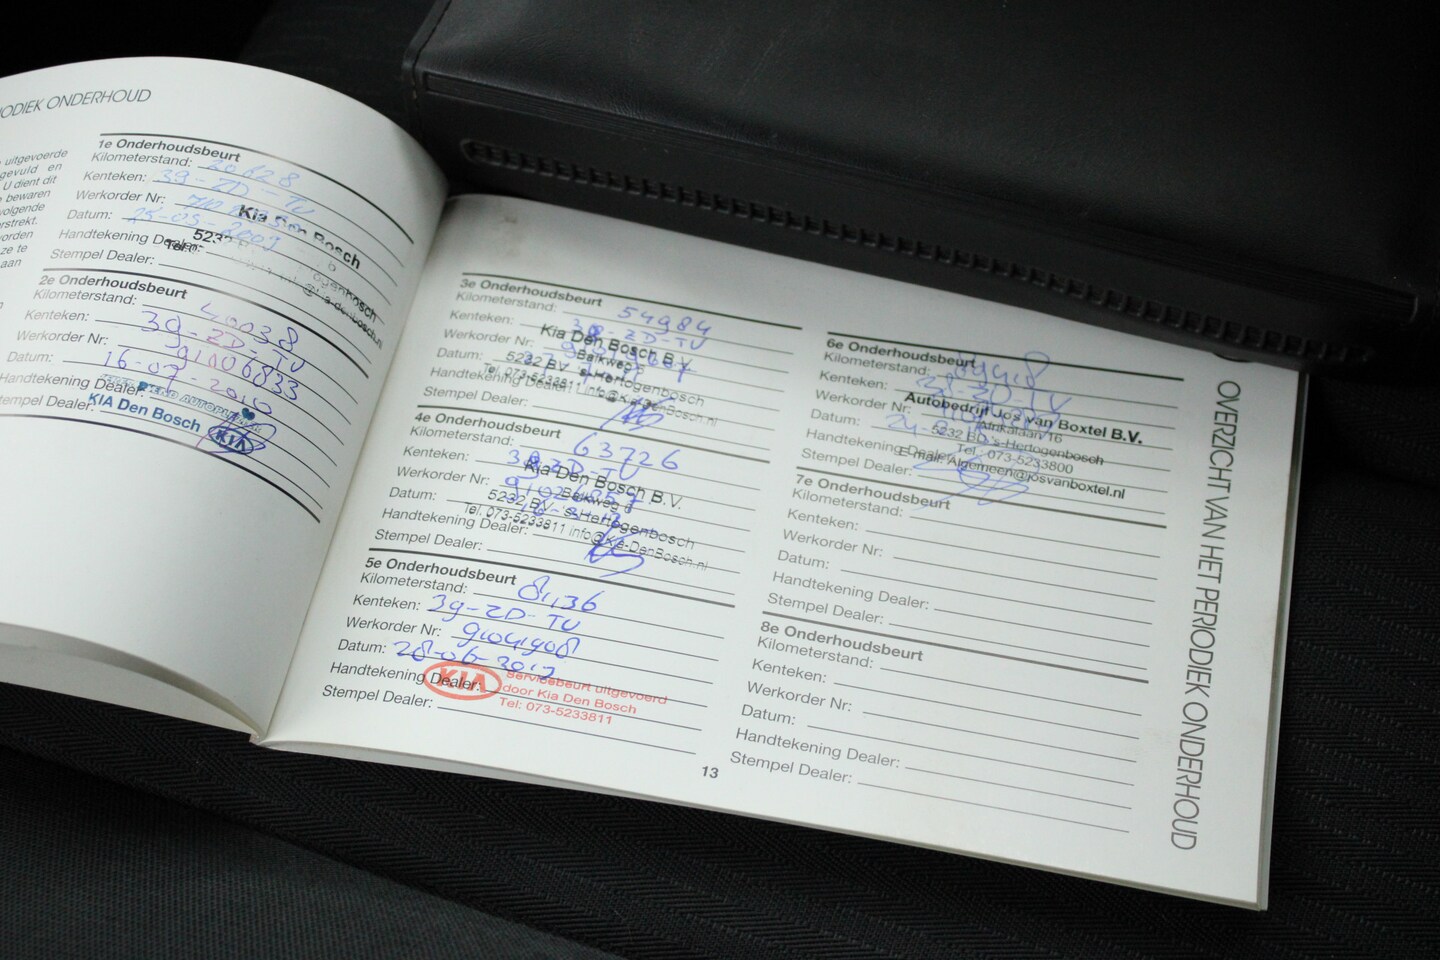 ODIEK ONDERHOUD
uitgevoerde
gevuld en
U dient dit
bewaren
volgende
rstrekt.
worden
ze te
aan
1e Onderhoudsbeurt
Kilometerstand: 20628
Kenteken: 39-ZD-TU
Werkorder Nr:
Datum: 25-05-2009
Handtekening Dealer:
Stempel Dealer:
Kia Den Bosch
2e Onderhoudsbeurt
Kilometerstand: 40038
Kenteken: 39-ZD-TU
Werkorder Nr: 91006833
Datum: 16-07-2010
Handtekening Dealer:
Stempel Dealer:
KIA Den Bosch
KIA
3e Onderhoudsbeurt
Kilometerstand: 54984
Kenteken: 39-ZD-TU
Werkorder Nr:
Datum:
Handtekening Dealer:
Stempel Dealer:
Kia Den Bosch B.V.
Balkweg
5232 BV 's-Hertogenbosch
Tel. 073-5233811 info@Kia-DenBosch.nl
4e Onderhoudsbeurt
Kilometerstand: 63726
Kenteken: 39-ZD-TU
Werkorder Nr:
Datum:
Handtekening Dealer:
Stempel Dealer:
Kia Den Bosch B.V.
Balkweg
5232 BV 's-Hertogenbosch
Tel. 073-5233811 info@Kia-DenBosch.nl
5e Onderhoudsbeurt
Kilometerstand: 81136
Kenteken: 39-ZD-TU
Werkorder Nr: 91041908
Datum: 28-06-2012
Handtekening Dealer:
Stempel Dealer:
KIA
Servicebeurt uitgevoerd
door Kia Den Bosch
Tel: 073-5233811
6e Onderhoudsbeurt
Kilometerstand:
Kenteken: 39-ZD-TU
Werkorder Nr:
Datum:
Handtekening Dealer:
Stempel Dealer:
Autobedrijf Jos van Boxtel B.V.
Afrikalaan 16
5232 BD 's-Hertogenbosch
Tel. 073-5233800
E-mail: Algemeen@josvanboxtel.nl
7e Onderhoudsbeurt
Kilometerstand:
Kenteken:
Werkorder Nr:
Datum:
Handtekening Dealer:
Stempel Dealer:
8e Onderhoudsbeurt
Kilometerstand:
Kenteken:
Werkorder Nr:
Datum:
Handtekening Dealer:
Stempel Dealer:
13
OVERZICHT VAN HET PERIODIEK ONDERHOUD